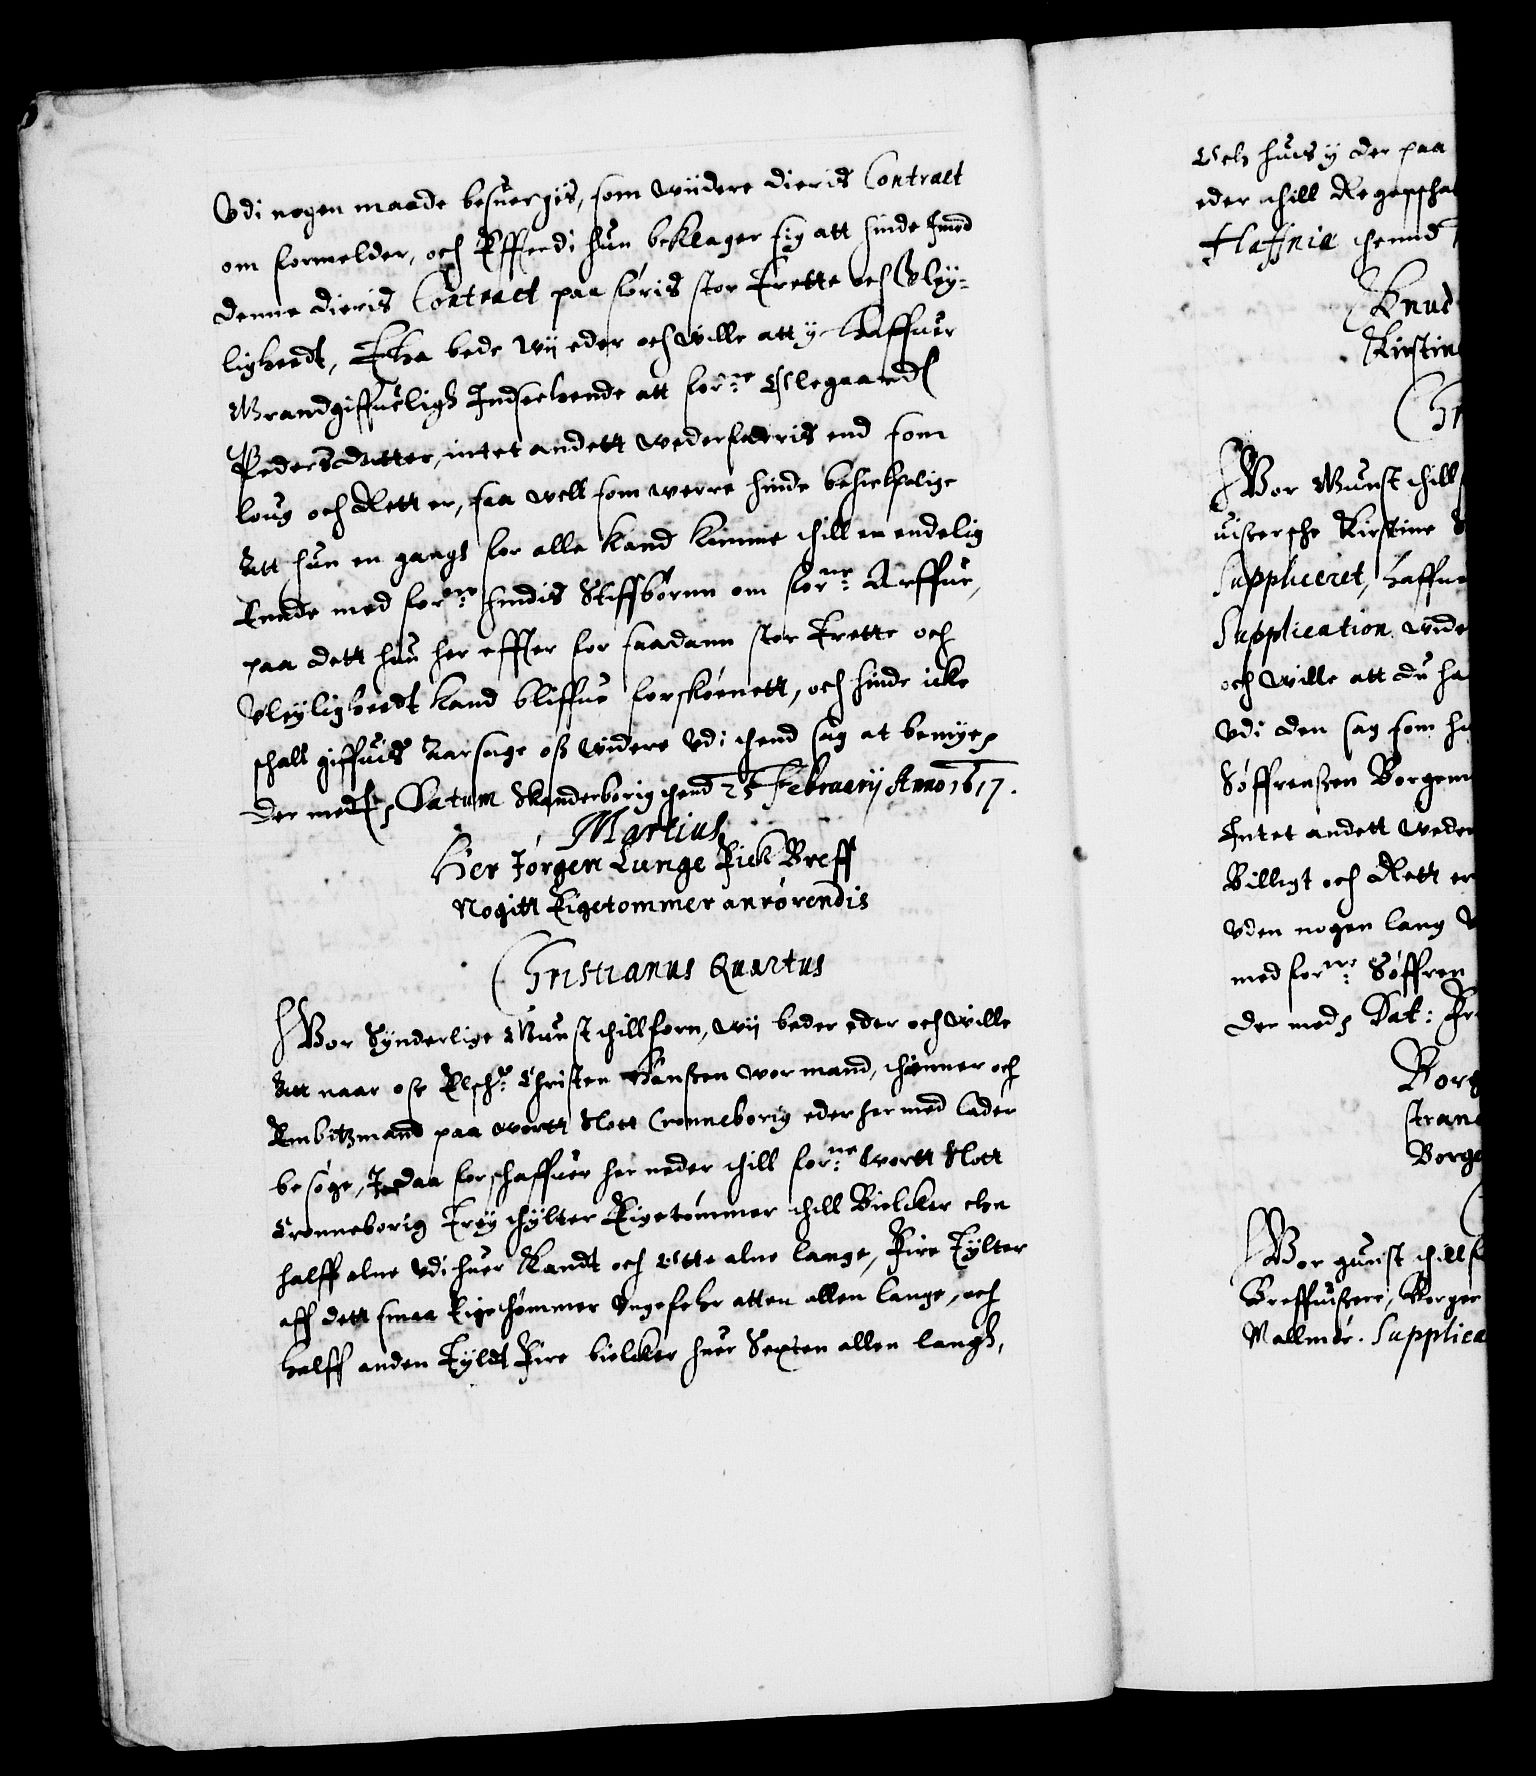 Vdi nogen maade besuergis, som wiidere dieris Contract
om formelder, och Efftterdi hun beklager sig att hinde Imod
denne dieris Contract paa føris stor Trette och Vley-
ligheedt, Tha bede wij eder och wille att y haffuer
Grandgiffueligh Indseehende att forne
Pedersdatter, intet andett wederfarris end som
loug och Rett er, saa well som werre hinde behielpelige
Att hun en gaags for alle kand komme thill en endelig
Ennde med forne hindis Stiffbørnn om forne Arffue,
paa dett hun her effter for saadann stor Trette och
Vleyligheedt kand bliffue forskoenett, och hinde icke
schall giffuis Aarsage oß widere Vdi thend sag at bemøye,
Der med Datum Skanderborig thend 25 Februarij Anno 1617.
Martius
Her Jørgen Lunge Fick Breff
Nogitt Eigetømmer anrørendis
Christianus Quartus
Wor Synderlige Gunst thillforn, wij beder eder och wille
Att naar oß Elschr: Christen Hanßen wor mand, thienner och
Embitzmand paa wortt Slott Cronneborig eder hermed lader
besøge, I daa forschaffuer her neder thill forne wortt Slott
Cronneborig Trey thylter Eigetømmer thill Bielcker
halff alne vdi huer Kandt och Otte alne lange, Fire Tylter
aff dett smaa Eigethømmer Vngefehr atten allen lange, och
halff anden Tyldt Fire bielcker huer Sexten allen langh,
Och huis y der paa
eder thill Regenscha
Haffnia thend
Knud
Kirstin
Wor Gunst thill
uißersche Kirstine
Suppliceret, haffue
Supplication wide
och wille att du ha
Vdi den sag som h
Søffrenßen Borgem
Intet andett weder
Billigt och Rett er
Vden nogen lang
med forne Søffren
Der med Dat: Fr
Borg
Strand
Borge
Wor gunst thill f
Breffuißere, Borger
Mallmør. Supplica